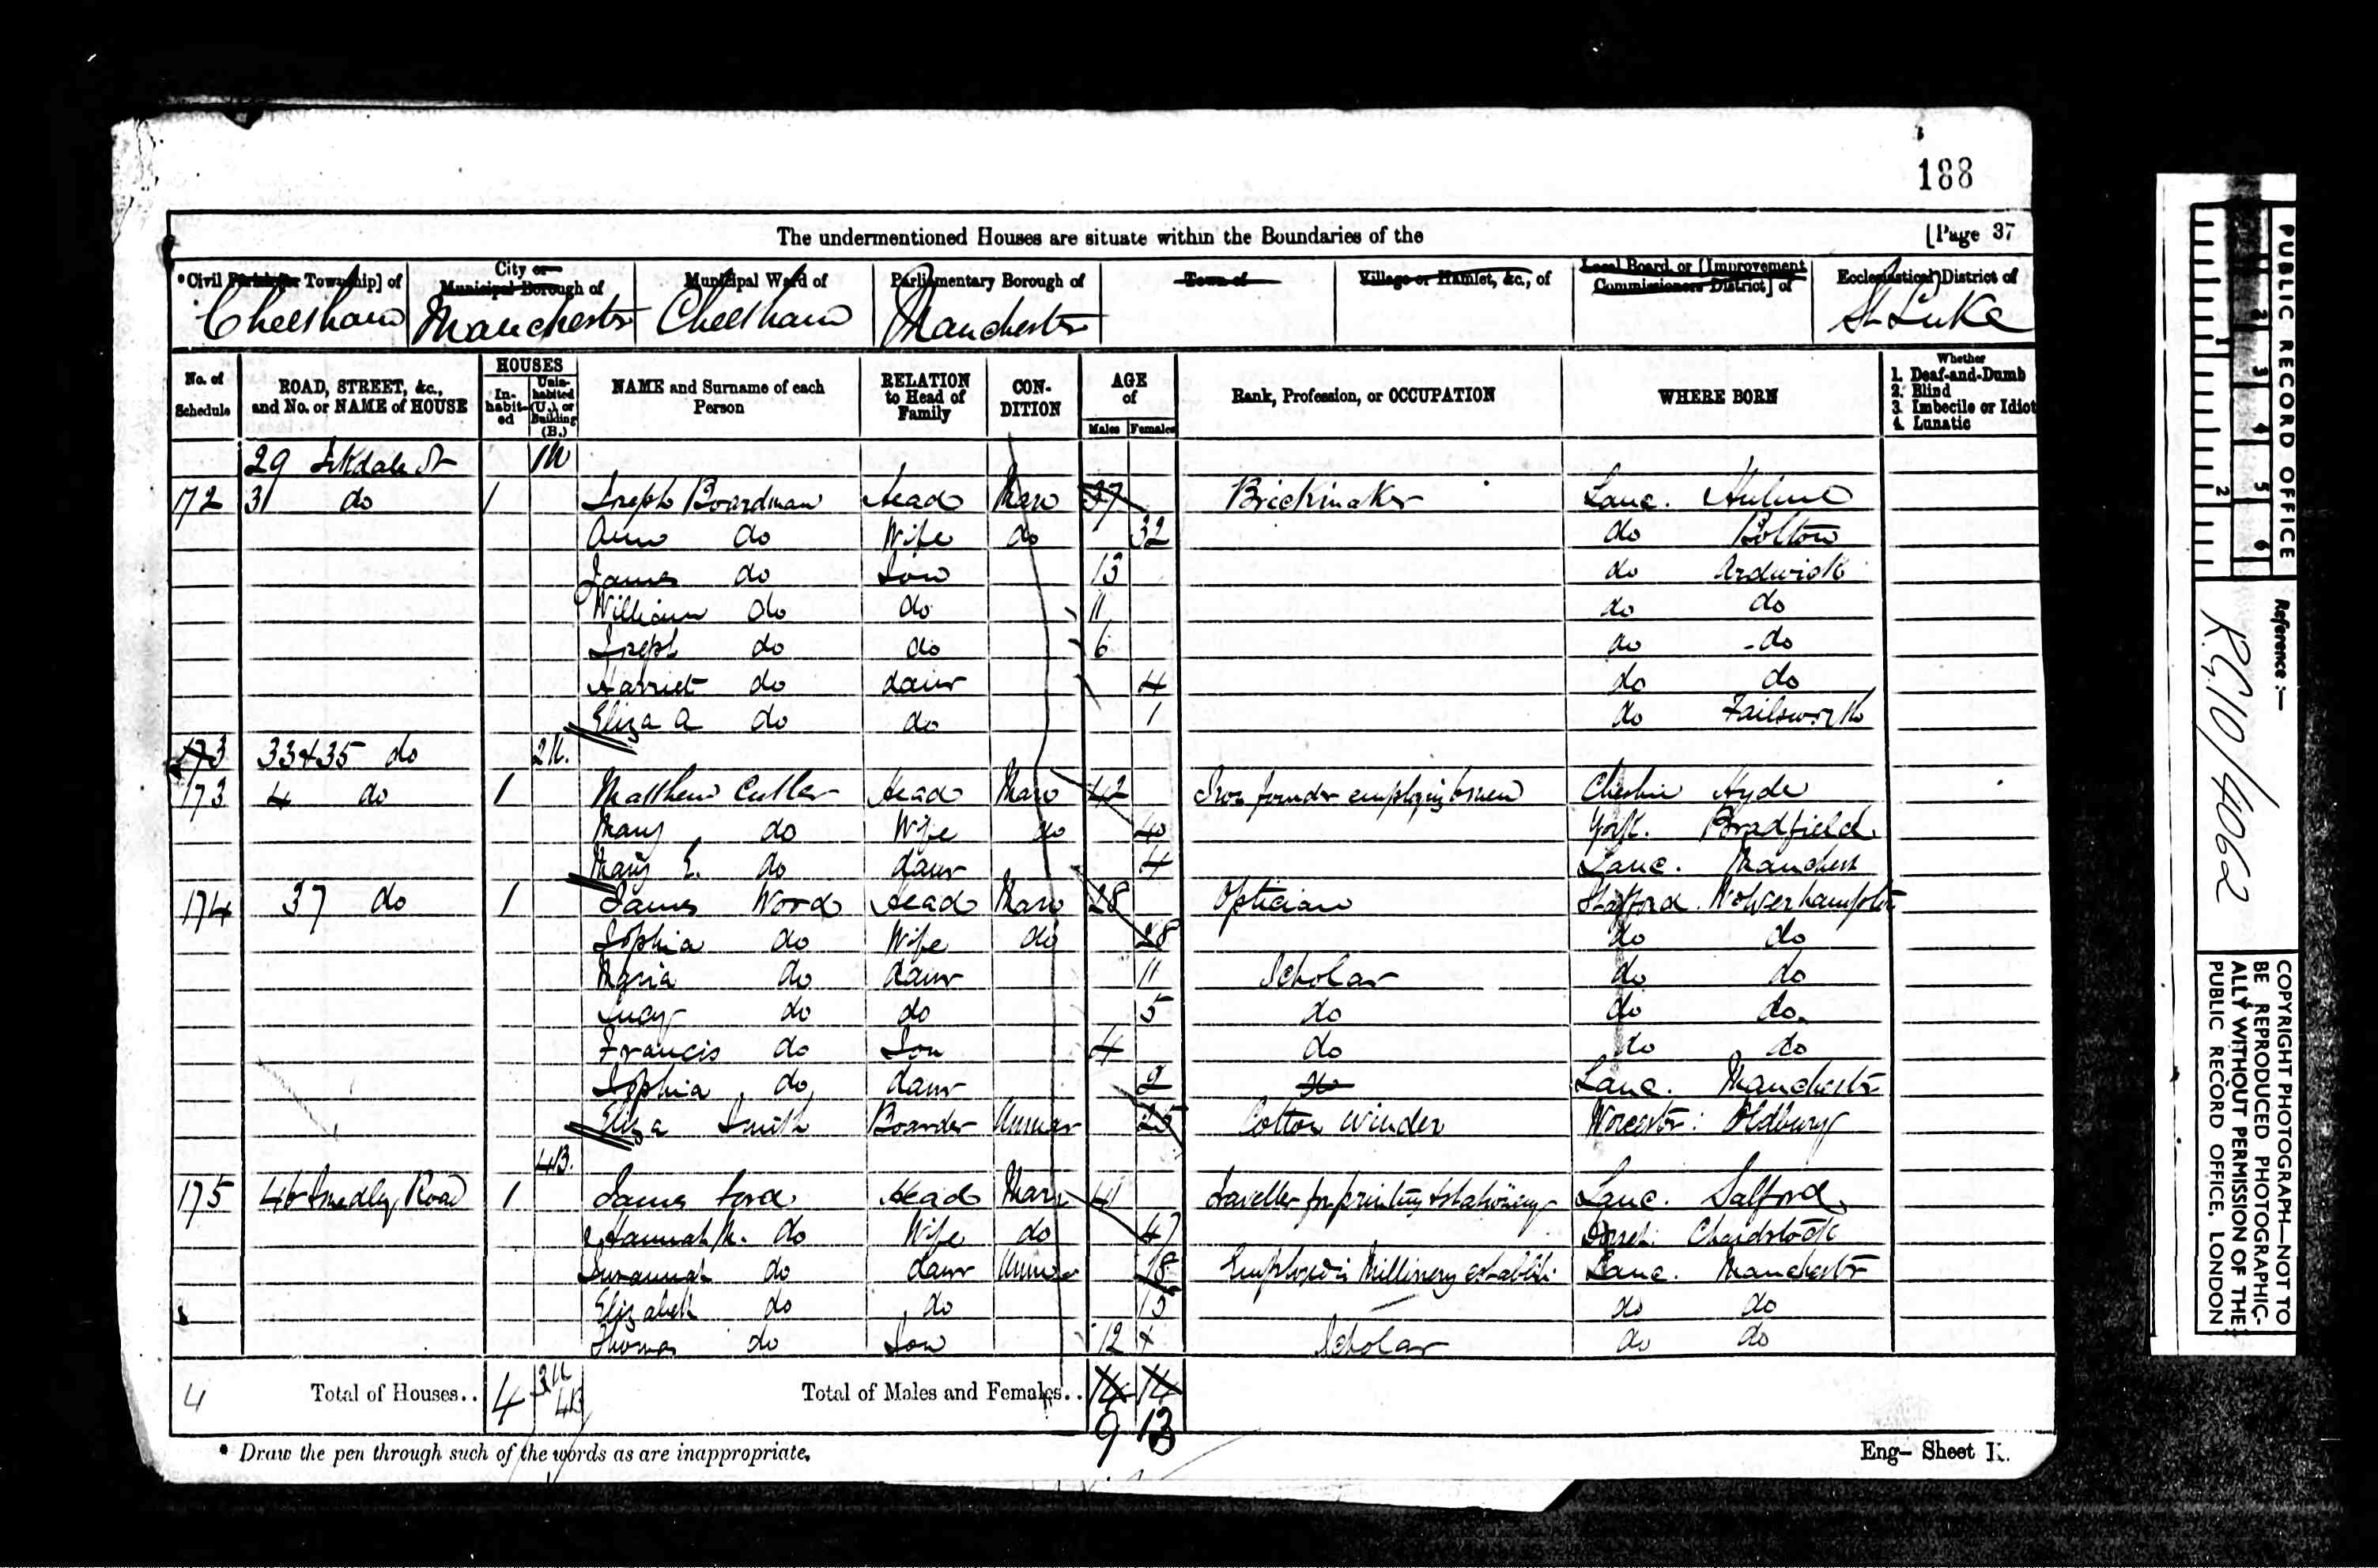 188
The undermentioned Houses are situate within the Boundaries of the [Page 37
*Civil Parish [or Township] of City or Municipal Borough of Municipal Ward of Parliamentary Borough of Town of Village or Hamlet, &c., of Local Board, or [Improvement Commissioners District] of Ecclesiastical District of
Cheetham Manchester Cheetham Manchester St Luke
No. of Schedule ROAD, STREET, &c., and No. or NAME of HOUSE HOUSES In-habit-ed Unin-habited (U.), or Building (B.) NAME and Surname of each Person RELATION to Head of Family CON-DITION AGE of Males Females Rank, Profession, or OCCUPATION WHERE BORN Whether 1. Deaf-and-Dumb 2. Blind 3. Imbecile or Idiot 4. Lunatic
29 Irkdale St 1U
172 31 do 1 Joseph Boardman Head Mar 37 Brickmaker Lanc. Hulme
Ann do Wife do 32 do Bolton
James do Son 13 do Ardwick
William do do 11 do do
Joseph do do 6 do do
Harriet do daur 4 do do
Eliza A do do 1 do Failsworth
173 33 & 35 do 2U.
173 4 do 1 Matthew Cutler Head Mar 42 Iron founder employing men Cheshire Hyde
Mary do Wife do 40 York. Bradfield.
Mary E. do daur 4 Lanc. Manchest
174 37 do 1 James Wood Head Mar 28 Optician Stafford. Wolverhampton
Sophia do Wife do 28 do do
Maria do daur 11 Scholar do do
Lucy do do 5 do do do
Francis do Son 4 do do do
Sophia do daur 2 do Lanc. Manchester
Eliza Smith Boarder Unmar 25 Cotton Winder Worcester: Oldbury
4B.
175 46 Smedley Road 1 James Ford Head Mar 41 Traveller for printing & stationery Lanc. Salford
Hannah M. do Wife do 47 Dorset: Chardstock
Susannah do daur Unmar 18 Employed in Millinery establih. Lanc. Manchester
Elizabeth do do 15 do do
Thomas do Son 12 Scholar do do
4 Total of Houses.. 4 3U 4B Total of Males and Females.. 14 14
9 13
* Draw the pen through such of the words as are inappropriate.
Eng- Sheet K.
PUBLIC RECORD OFFICE
1 2 3 4 5 6
1 2
Reference :—
RG 10/4062
COPYRIGHT PHOTOGRAPH—NOT TO
BE REPRODUCED PHOTOGRAPHIC-
ALLY WITHOUT PERMISSION OF THE
PUBLIC RECORD OFFICE, LONDON